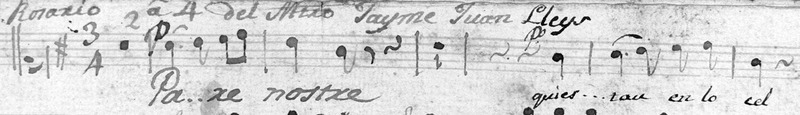 Rosario 2 a 4 del Mtro Jayme Juan Lleys
3
4
Pa..re nostre quies...tau en lo cel